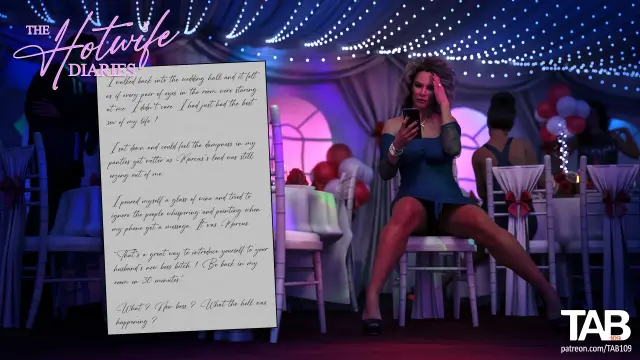 THE
Hotwife
DIARIES
I walked back into the wedding hall and it felt
as if every pair of eyes in the room were staring
at me. I didn't care. I had just had the best
sex of my life!
I sat down and could feel the dampness in my
panties get wetter as Marcus's load was still
oozing out of me.
I poured myself a glass of wine and tried to
ignore the people whispering and pointing when
my phone got a message. It was Marcus.
"That's a great way to introduce yourself to your
husband's new boss bitch! Be back in my
room in 30 minutes"
What? New boss? What the hell was
happening?
TAB
109
patreon.com/TAB109